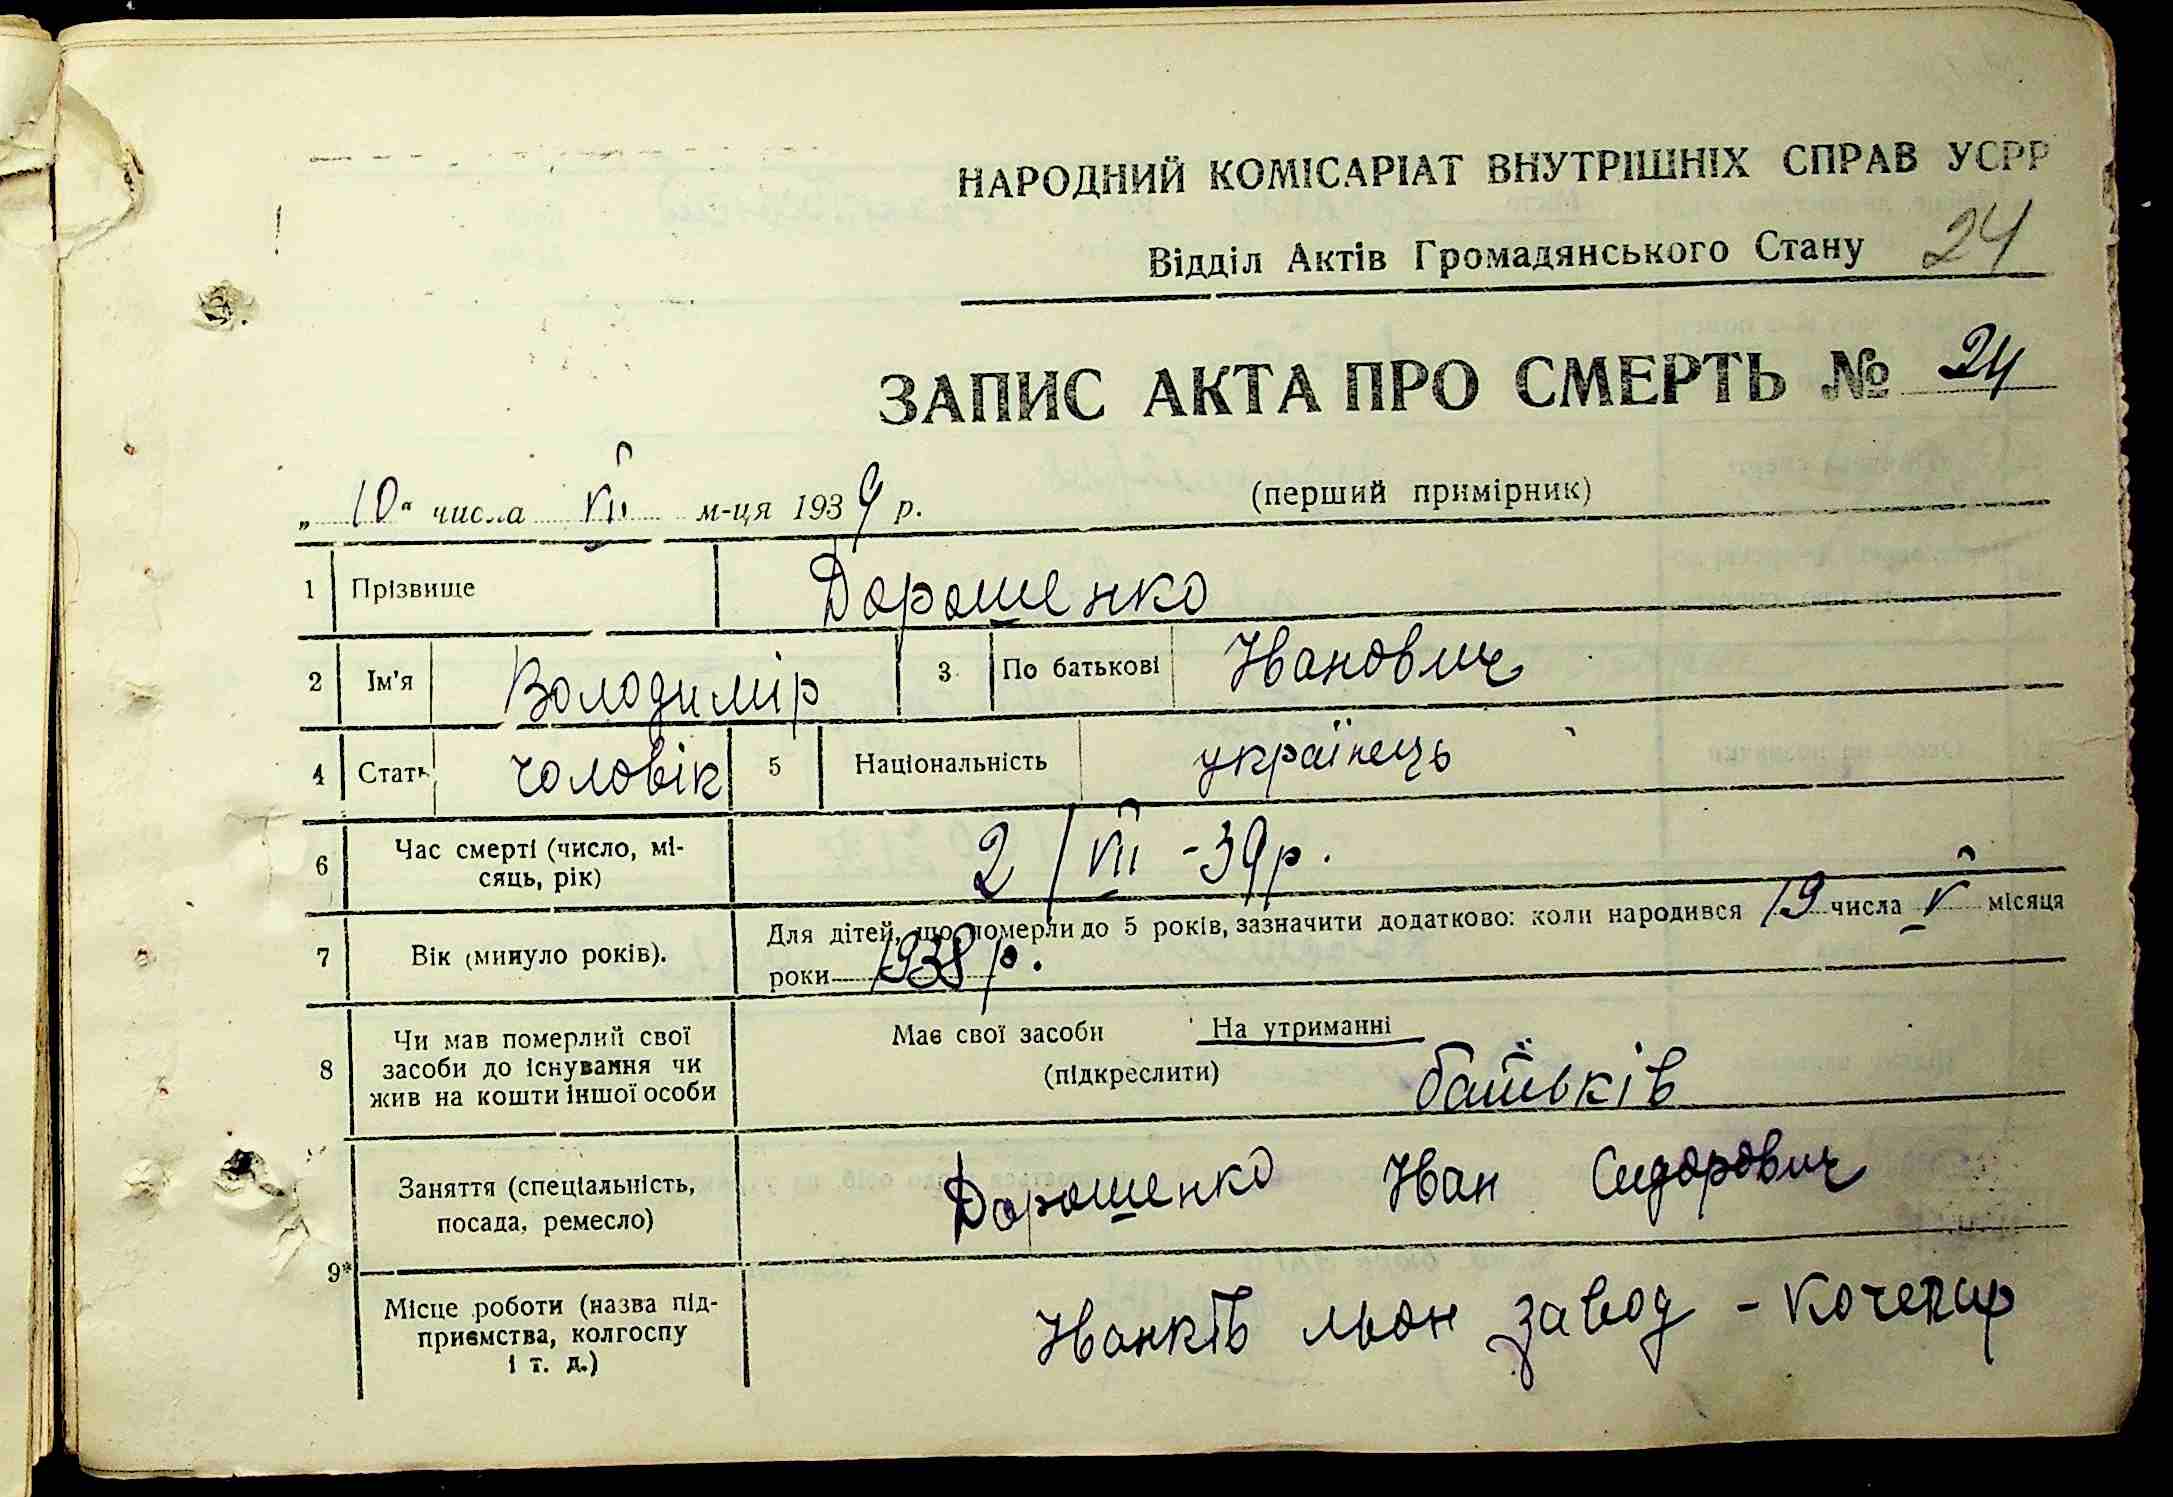 НАРОДНИЙ КОМІСАРІАТ ВНУТРІШНІХ СПРАВ УСРР
Відділ Актів Громадянського Стану 24
ЗАПИС АКТА ПРО СМЕРТЬ № 24
„ 10 “ числа VII м-ця 1939 р. (перший примірник)
1 Прізвище Дорошенко
2 Ім'я Володимір 3 По батькові Іванович
4 Стать чоловік 5 Національність українець
6 Час смерті (число, мі-
сяць, рік) 2/VII -39р.
7 Вік (минуло років). Для дітей, що померли до 5 років, зазначити додатково: коли народився 19 числа V місяця
роки 1938 р.
8 Чи мав померлий свої
засоби до існування чи
жив на кошти іншої особи
Має свої засоби На утриманні
(підкреслити) батьків
9* Заняття (спеціальність,
посада, ремесло) Дорошенко Іван Сидорович
Місце роботи (назва під-
приємства, колгоспу
і т. д.) Іванків льон завод - кочегар